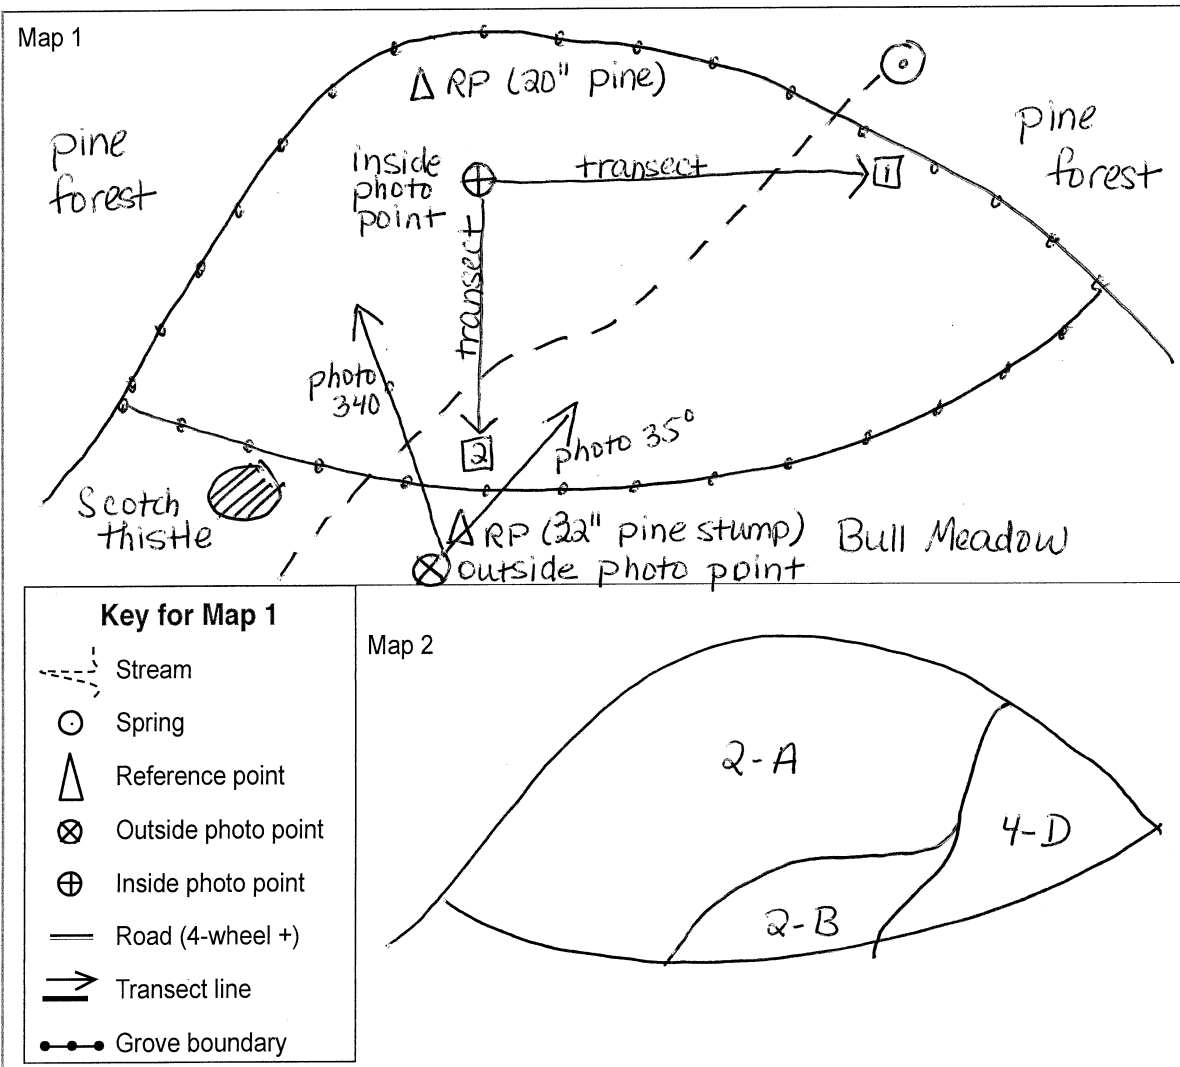 Map 1
Δ RP (20" pine)
pine
forest
pine
forest
inside
photo
point
transect
1
transect
photo
340
2
photo 35°
Scotch
thistle
Δ RP (32" pine stump)
Bull Meadow
outside photo point
Key for Map 1
Stream
Spring
Reference point
Outside photo point
Inside photo point
Road (4-wheel +)
Transect line
Grove boundary
Map 2
2-A
4-D
2-B